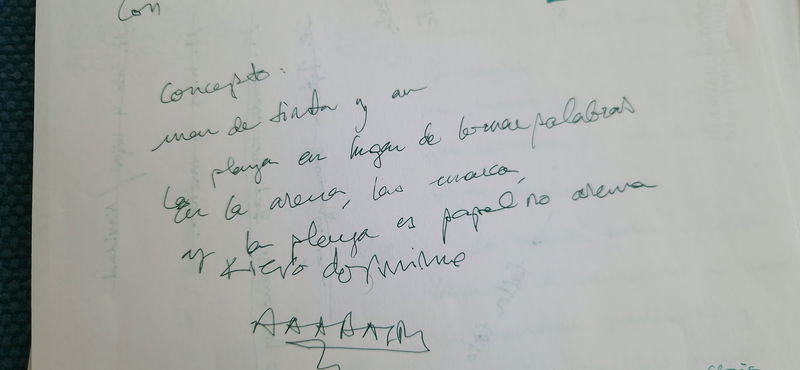 Con
Concepto:
mar de tinta y en
la playa en lugar de borrar palabras
en la arena, las marca,
y la playa es papel, no arena
kiero dormirme